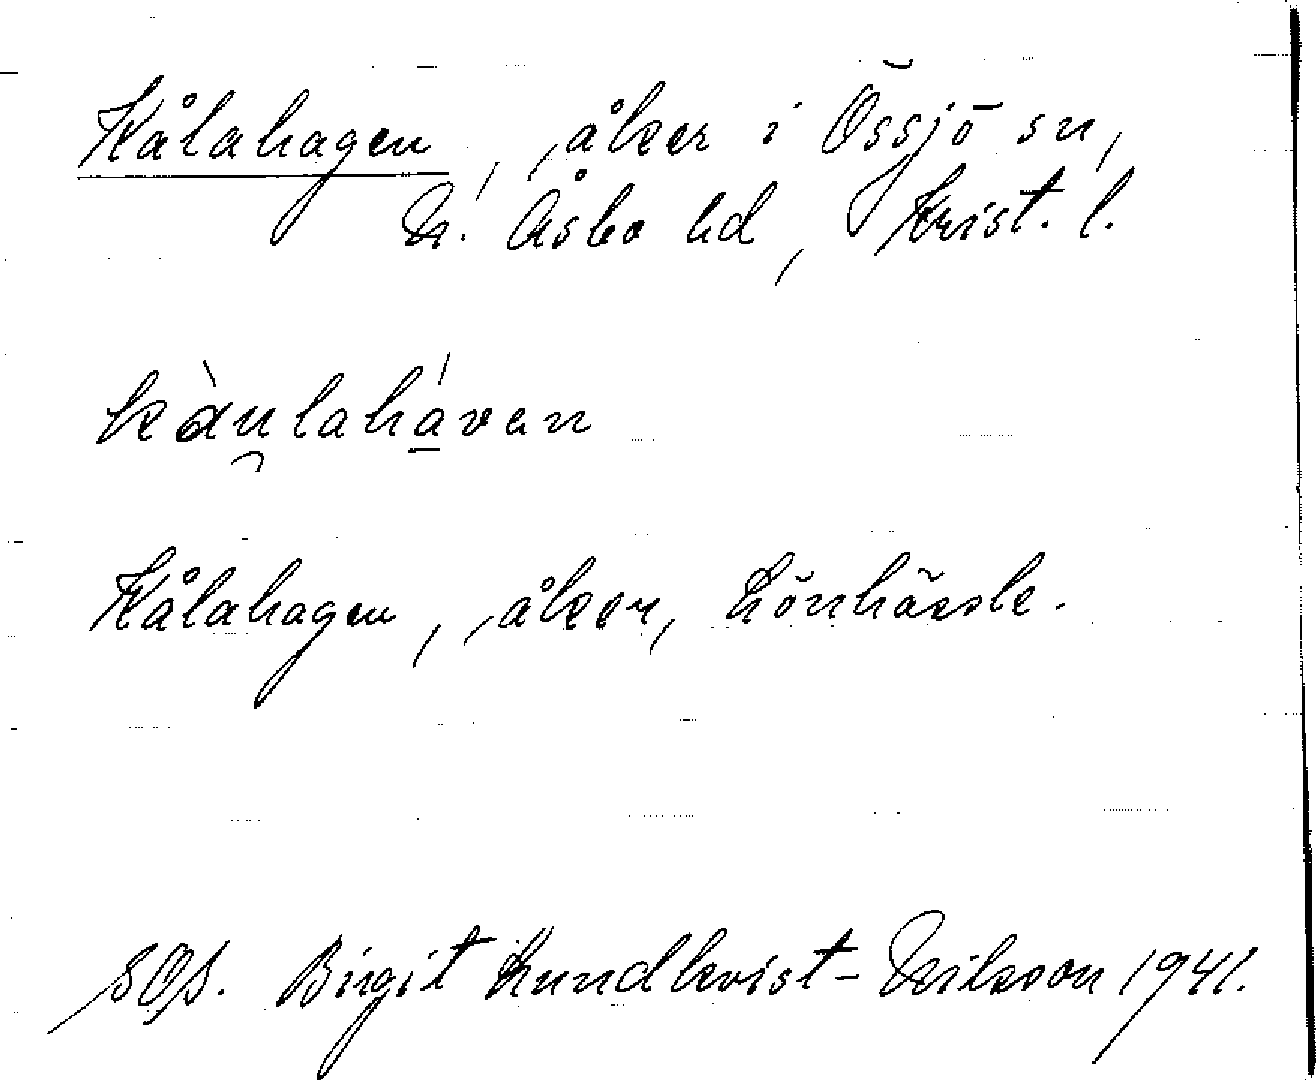 Kålahagen, åker i Össjö sn,
N. Åsbo hd, Krist. l.
kàu̯lahá̱van
Kålahagen, åker, Lönhässle.
SOS. Birgit Lundkvist-Nilsson 1941.